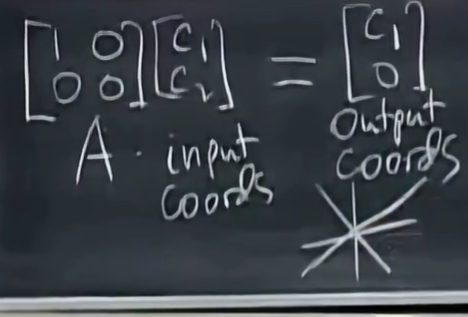 [1 0] [c₁] = [c₁]
[0 0] [c₂] [0]
A · input coords
output coords